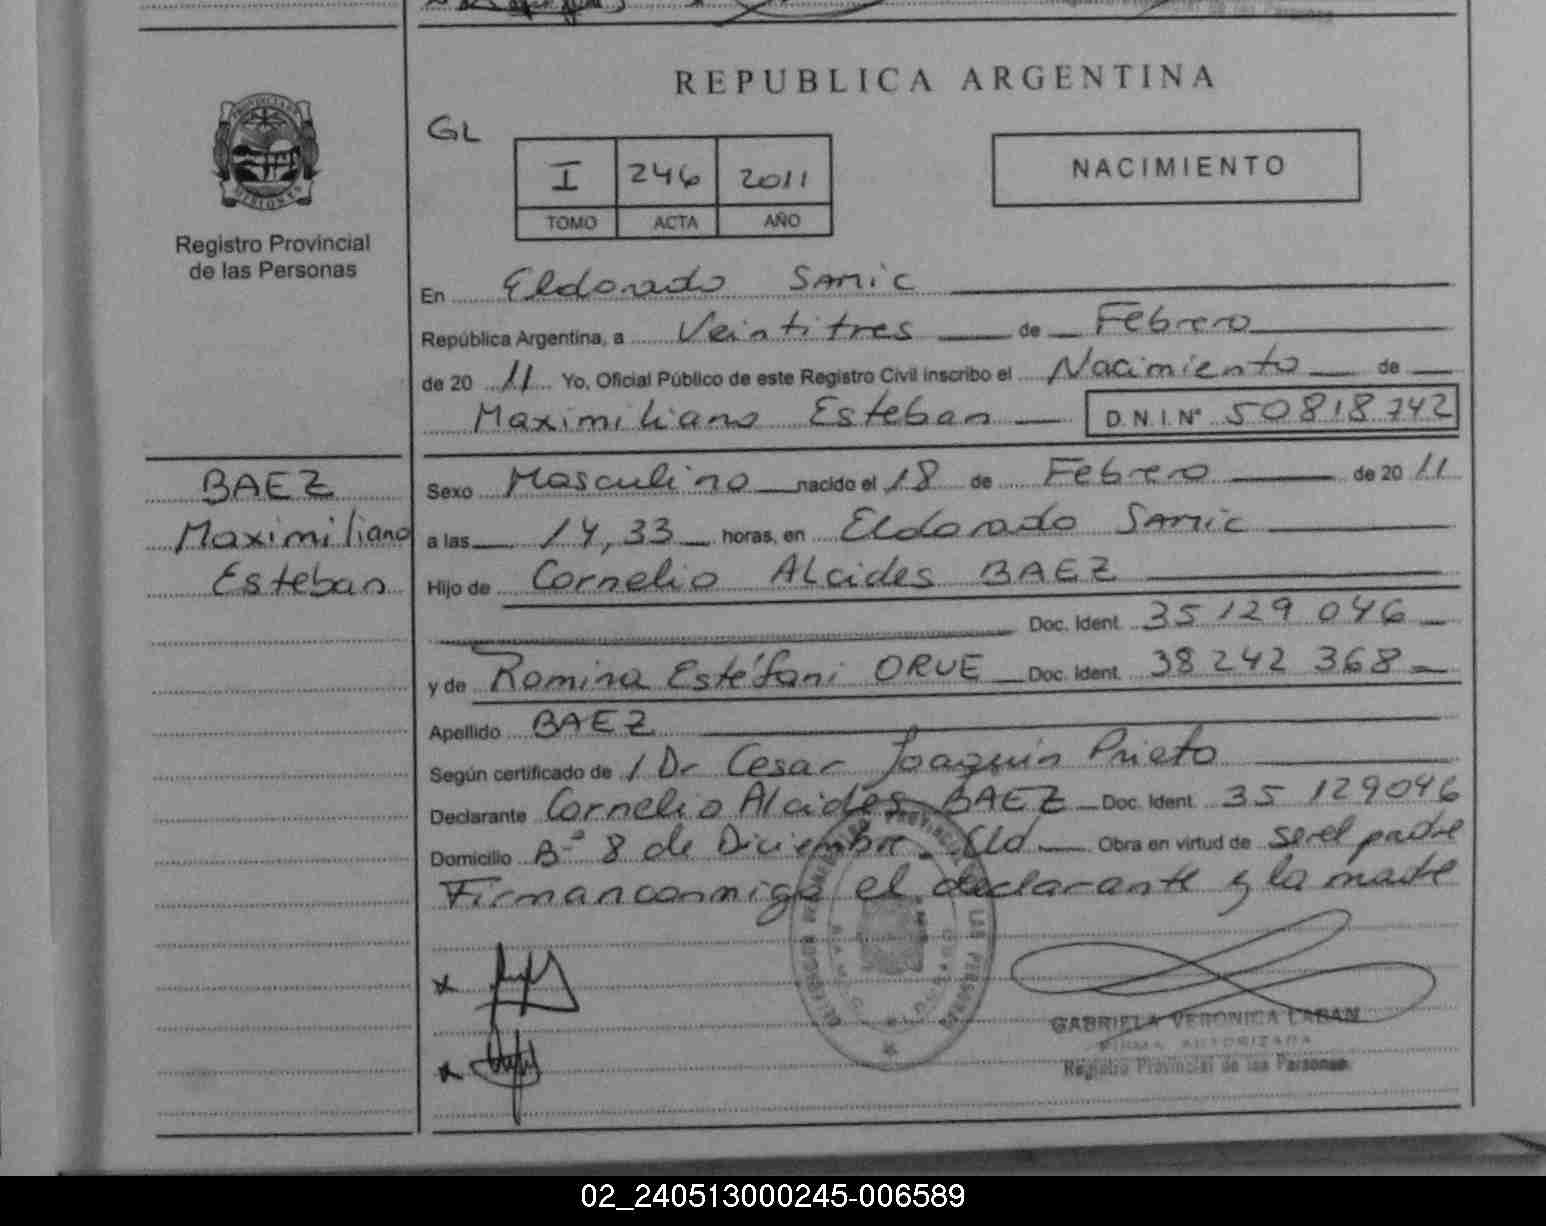 REPUBLICA ARGENTINA
GL
Registro Provincial
de las Personas
I 246 2011
TOMO ACTA AÑO
NACIMIENTO
En Eldorado SAMIC
República Argentina, a Veintitres de Febrero
de 20 11 Yo, Oficial Público de este Registro Civil inscribo el Nacimiento de
Maximiliano Esteban D.N.I.Nº 50818742
BAEZ
Maximiliano
Esteban
Sexo Masculino nacido el 18 de Febrero de 20 11
a las 14,33 horas, en Eldorado SAMIC
Hijo de Cornelio Alcides BAEZ
Doc. Ident. 35 129 046
y de Romina Estéfani ORUE Doc. Ident. 38 242 368
Apellido BAEZ
Según certificado de / Dr Cesar Joaquin Prieto
Declarante Cornelio Alcides BAEZ Doc. Ident. 35 129046
Domicilio Bº 8 de Diciembre Eld Obra en virtud de ser el padre
Firman conmigo el declarante y la madre
GABRIELA VERONICA LABAN
FIRMA AUTORIZADA
Registro Provincial de las Personas
02_240513000245-006589